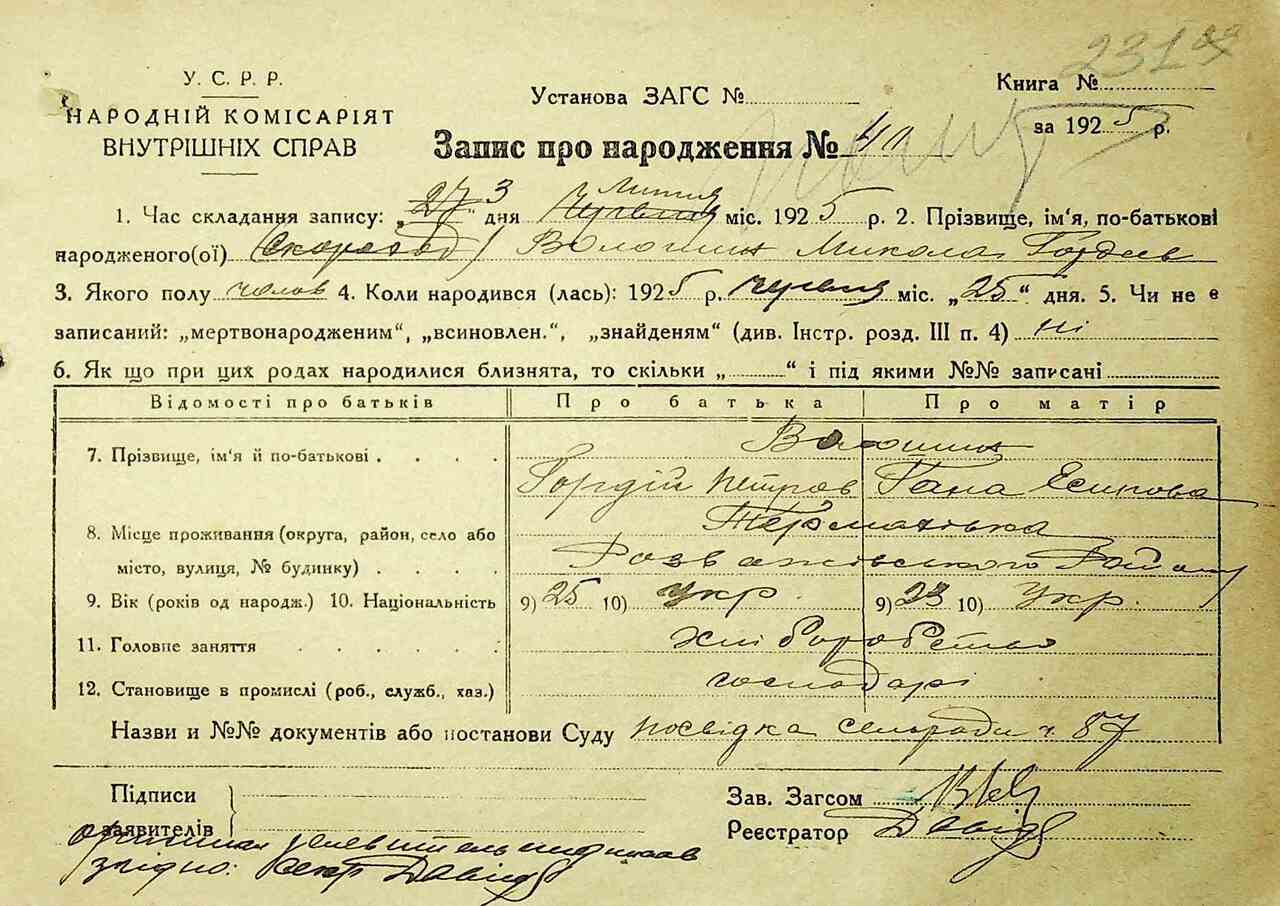 231
У. С. Р. Р.
НАРОДНІЙ КОМІСАРІЯТ
ВНУТРІШНІХ СПРАВ
Установа ЗАГС №
Книга №
за 1925 р.
Запис про народження № 40
27 3 Липня
1. Час складання запису: „ “ дня Червня міс. 1925 р. 2. Прізвище, ім'я, по-батькові
народженого(ої) Волошин Микола Гордеев
3. Якого полу чолов 4. Коли народився (лась): 1925 р. Червня міс. „25“ дня. 5. Чи не є
записаний: „мертвонародженим“, „всиновлен.“, „знайденям“ (див. Інстр. розд. III п. 4) ні
6. Як що при цих родах народилися близнята, то скільки „ “ і під якими №№ записані
Відомості про батьків Про батька Про матір
Волошин
7. Прізвище, ім'я й по-батькові . . . .
Гордій Петров Гана Есипова
Термахівка
8. Місце проживання (округа, район, село або
місто, вулиця, № будинку) . . . . Розважівського Району
9. Вік (років од народж.) 10. Національність 9) 25 10) Укр. 9) 23 10) Укр.
11. Головне заняття . . . . . . хліборобство
12. Становище в промислі (роб., служб., хаз.) господарі
Назви и №№ документів або постанови Суду посвідка сельради ч. 87
Підписи
заявителів
Зав. Загсом
Реєстратор Давид
згідно: Секр Давид